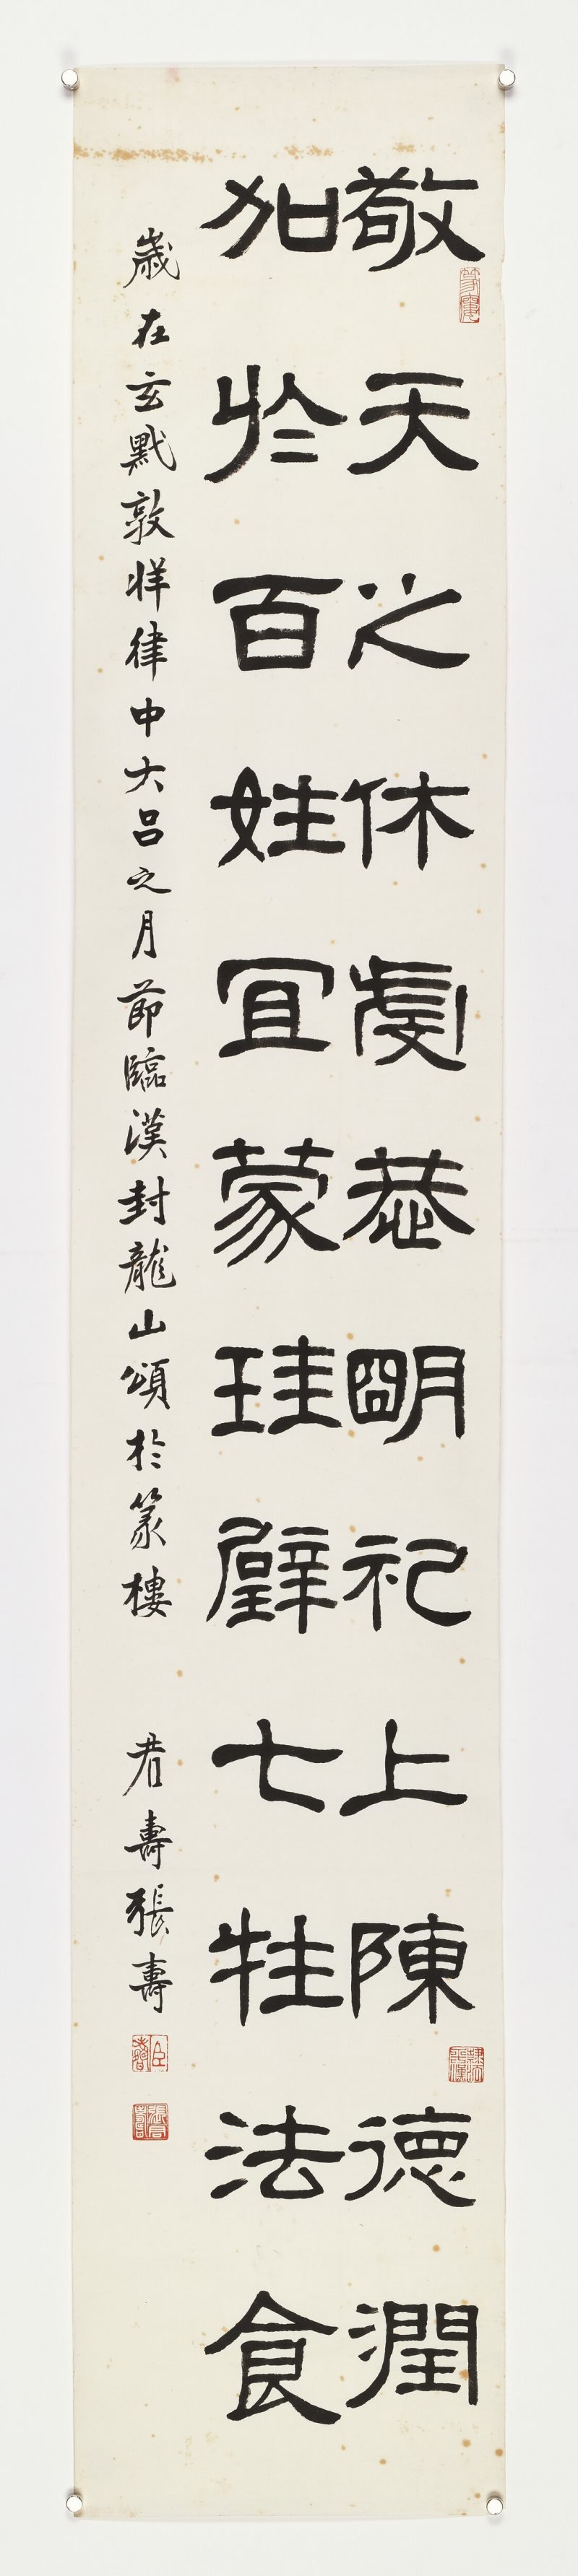 敬天之休虔恭朙祀上陳德潤
加於百姓冝蒙珪璧七牲法食
歲在玄黓敦牂律中大呂之月節臨漢封龍山頌於篆樓
君壽張壽
篆廔